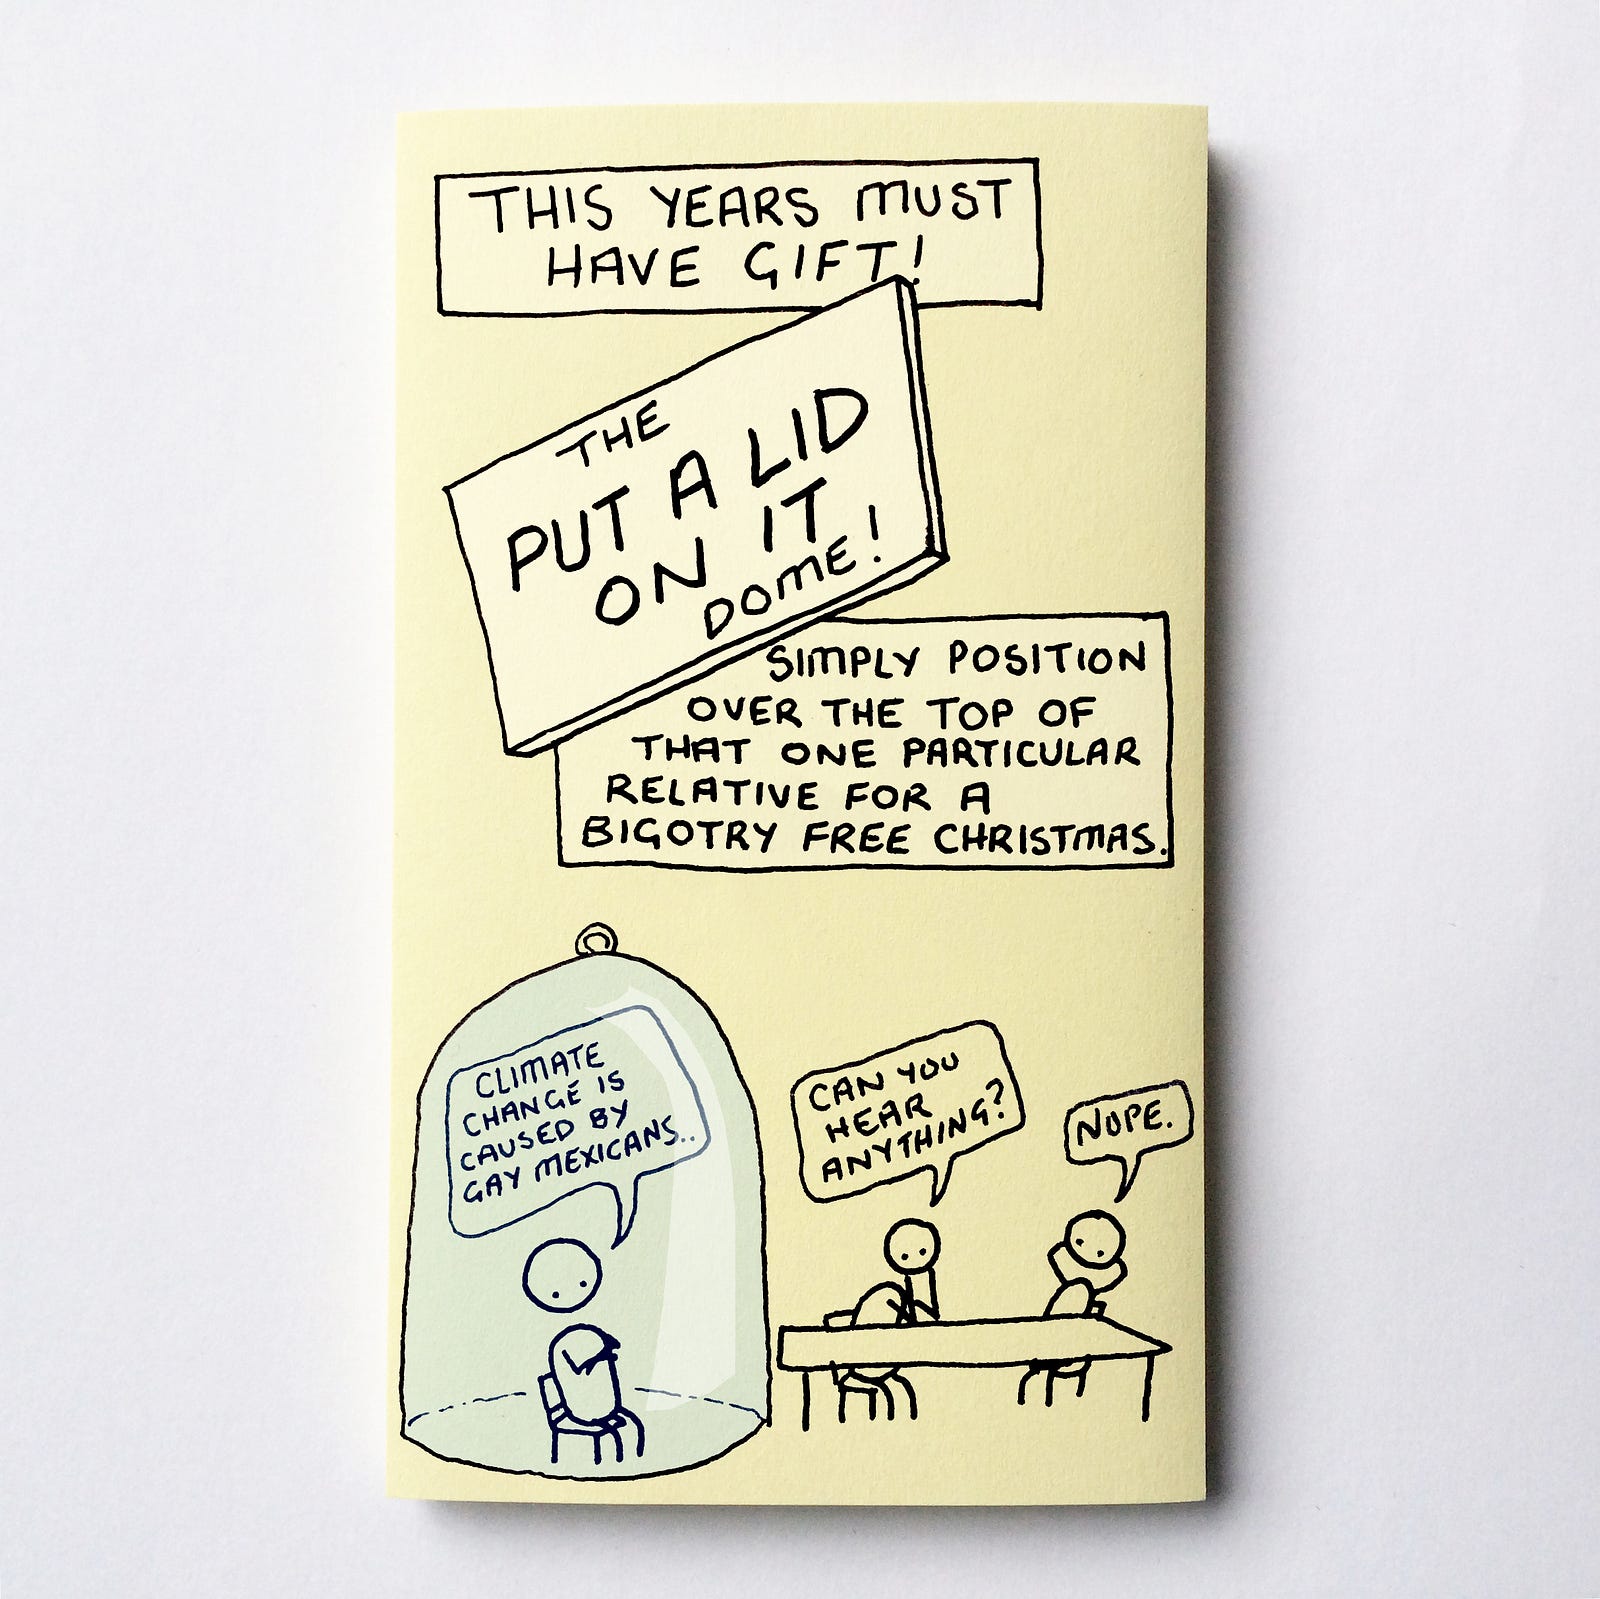 THIS YEARS MUST
HAVE GIFT!
THE
PUT A LID
ON IT
DOME!
SIMPLY POSITION
OVER THE TOP OF
THAT ONE PARTICULAR
RELATIVE FOR A
BIGOTRY FREE CHRISTMAS.
CLIMATE
CHANGE IS
CAUSED BY
GAY MEXICANS..
CAN YOU
HEAR
ANYTHING?
NOPE.